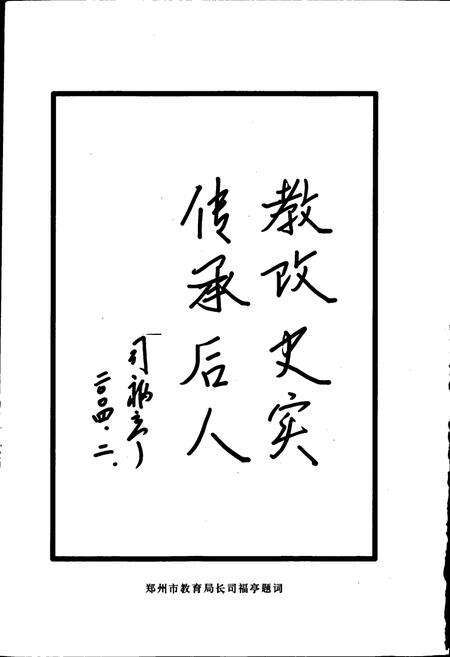 教改史实
传承后人
司福亭
二〇〇四.二.
郑州市教育局长司福亭题词